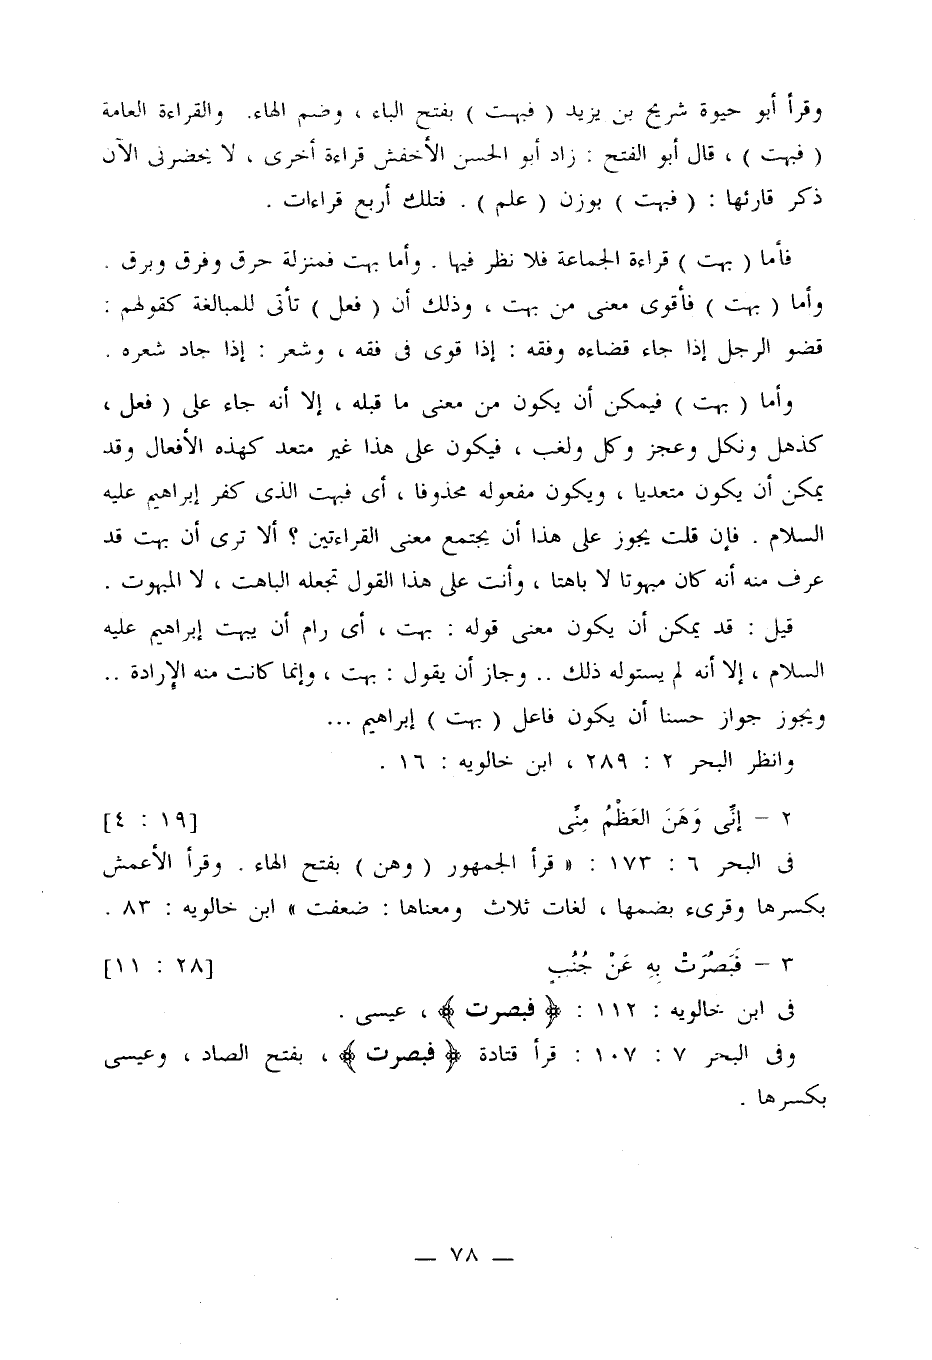 وقرأ أبو حيوة شريح بن يزيد ( فبهت ) بفتح الباء ، وضم الهاء. والقراءة العامة
( فبهت ) ، قال أبو الفتح : زاد أبو الحسن الأخفش قراءة أخرى ، لا يحضرنى الآن
ذكر قارئها : ( فبهت ) بوزن ( علم ) . فتلك أربع قراءات .
فأما ( بهت ) قراءة الجماعة فلا نظر فيها . وأما بهت فمنزلة حرق وفرق وبرق .
وأما ( بهت ) فأقوى معنى من بهت ، وذلك أن ( فعل ) تأتى للمبالغة كقولهم :
قضو الرجل إذا جاء قضاءه وفقه : إذا قوى فى فقه ، وشعر : إذا جاد شعره .
وأما ( بهت ) فيمكن أن يكون من معنى ما قبله ، إلا أنه جاء على ( فعل ،
كذهل ونكل وعجز وكل ولغب ، فيكون على هذا غير متعد كهذه الأفعال وقد
يمكن أن يكون متعديا ، ويكون مفعوله محذوفا ، أى فبهت الذى كفر إبراهيم عليه
السلام . فإن قلت يجوز على هذا أن يجتمع معنى القراءتين ؟ ألا ترى أن بهت قد
عرف منه أنه كان مبهوتا لا باهتا ، وأنت على هذا القول تجعله الباهت ، لا المبهوت .
قيل : قد يمكن أن يكون معنى قوله : بهت ، أى رام أن يبهت إبراهيم عليه
السلام ، إلا أنه لم يستوله ذلك .. وجاز أن يقول : بهت ، وإنما كانت منه الإرادة ..
ويجوز جواز حسنا أن يكون فاعل ( بهت ) إبراهيم ...
وانظر البحر ٢ : ٢٨٩ ، ابن خالويه : ١٦ .
٢ – إنِّى وَهَنَ العَظْمُ مِنِّى [١٩ : ٤]
فى البحر ٦ : ١٧٣ : « قرأ الجمهور ( وهن ) بفتح الهاء . وقرأ الأعمش
بكسرها وقرىء بضمها ، لغات ثلاث ومعناها : ضعفت » ابن خالويه : ٨٣ .
٣ – فَبَصُرَتْ بِهِ عَنْ جُنُبٍ [٢٨ : ١١]
فى ابن خالويه : ١١٢ : ﴿ فبصرت ﴾ ، عيسى .
وفى البحر ٧ : ١٠٧ : قرأ قتادة ﴿ فبصرت ﴾ ، بفتح الصاد ، وعيسى
بكسرها .
— ٧٨ —